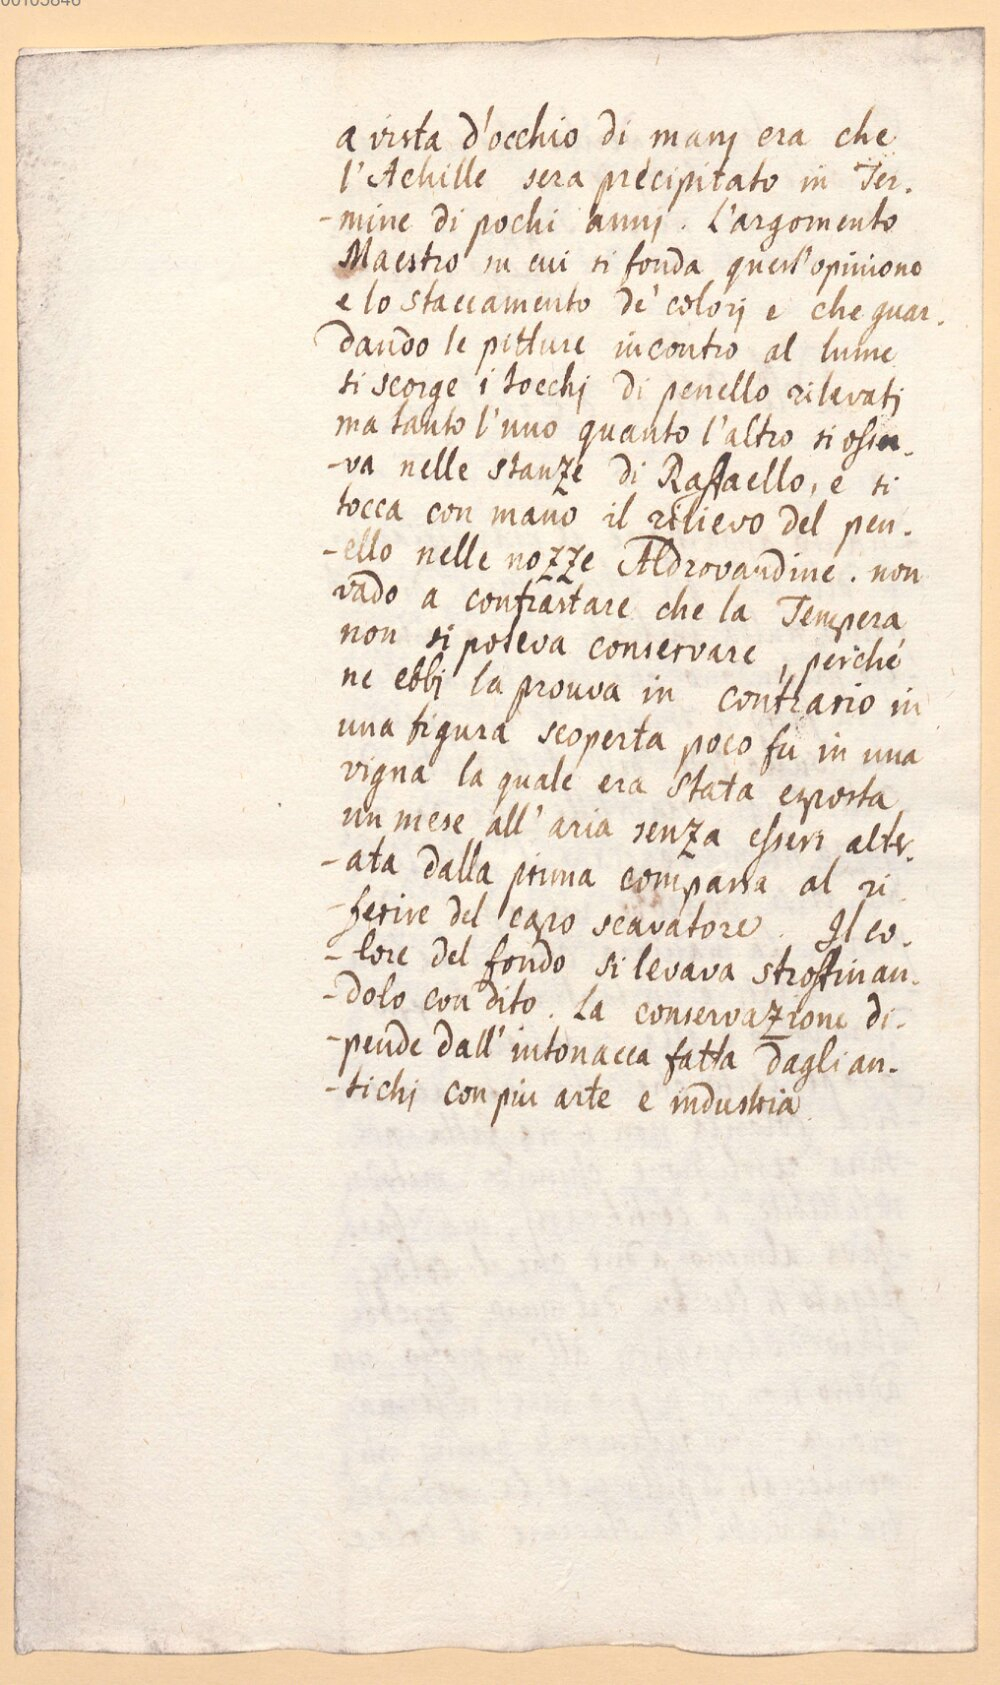 00105846
a vista d'occhio di manj era che
l'Achille sera precipitato in Ter-
-mine di pochi annj. L'argomento
Maestro su cui si fonda quest'opinione
e lo staccamento de' colorj e che guar-
dando le pitture incontro al lume
si scorge i tocchj di penello rilevatj
ma tanto l'uno quanto l'altro si osser-
-va nelle stanze di Raffaello, e si
tocca con mano il rilievo del pen-
-ello nelle nozze Aldrovandine. non
vado a contrastare che la Tempera
non si poteva conservare, perché
ne ebbj la prouva in contrario in
una figura scoperta poco fu in una
vigna la quale era stata exposta
un mese all'aria senza essere alter-
-ata dalla prima comparsa al ri
-ferire del capo scavatore. Il co-
-lore del fondo si levava stroffinan-
-dolo con dito. La conservazione di-
-pende dall'intonacca fatta dagli an-
-tichj con piu arte e industria